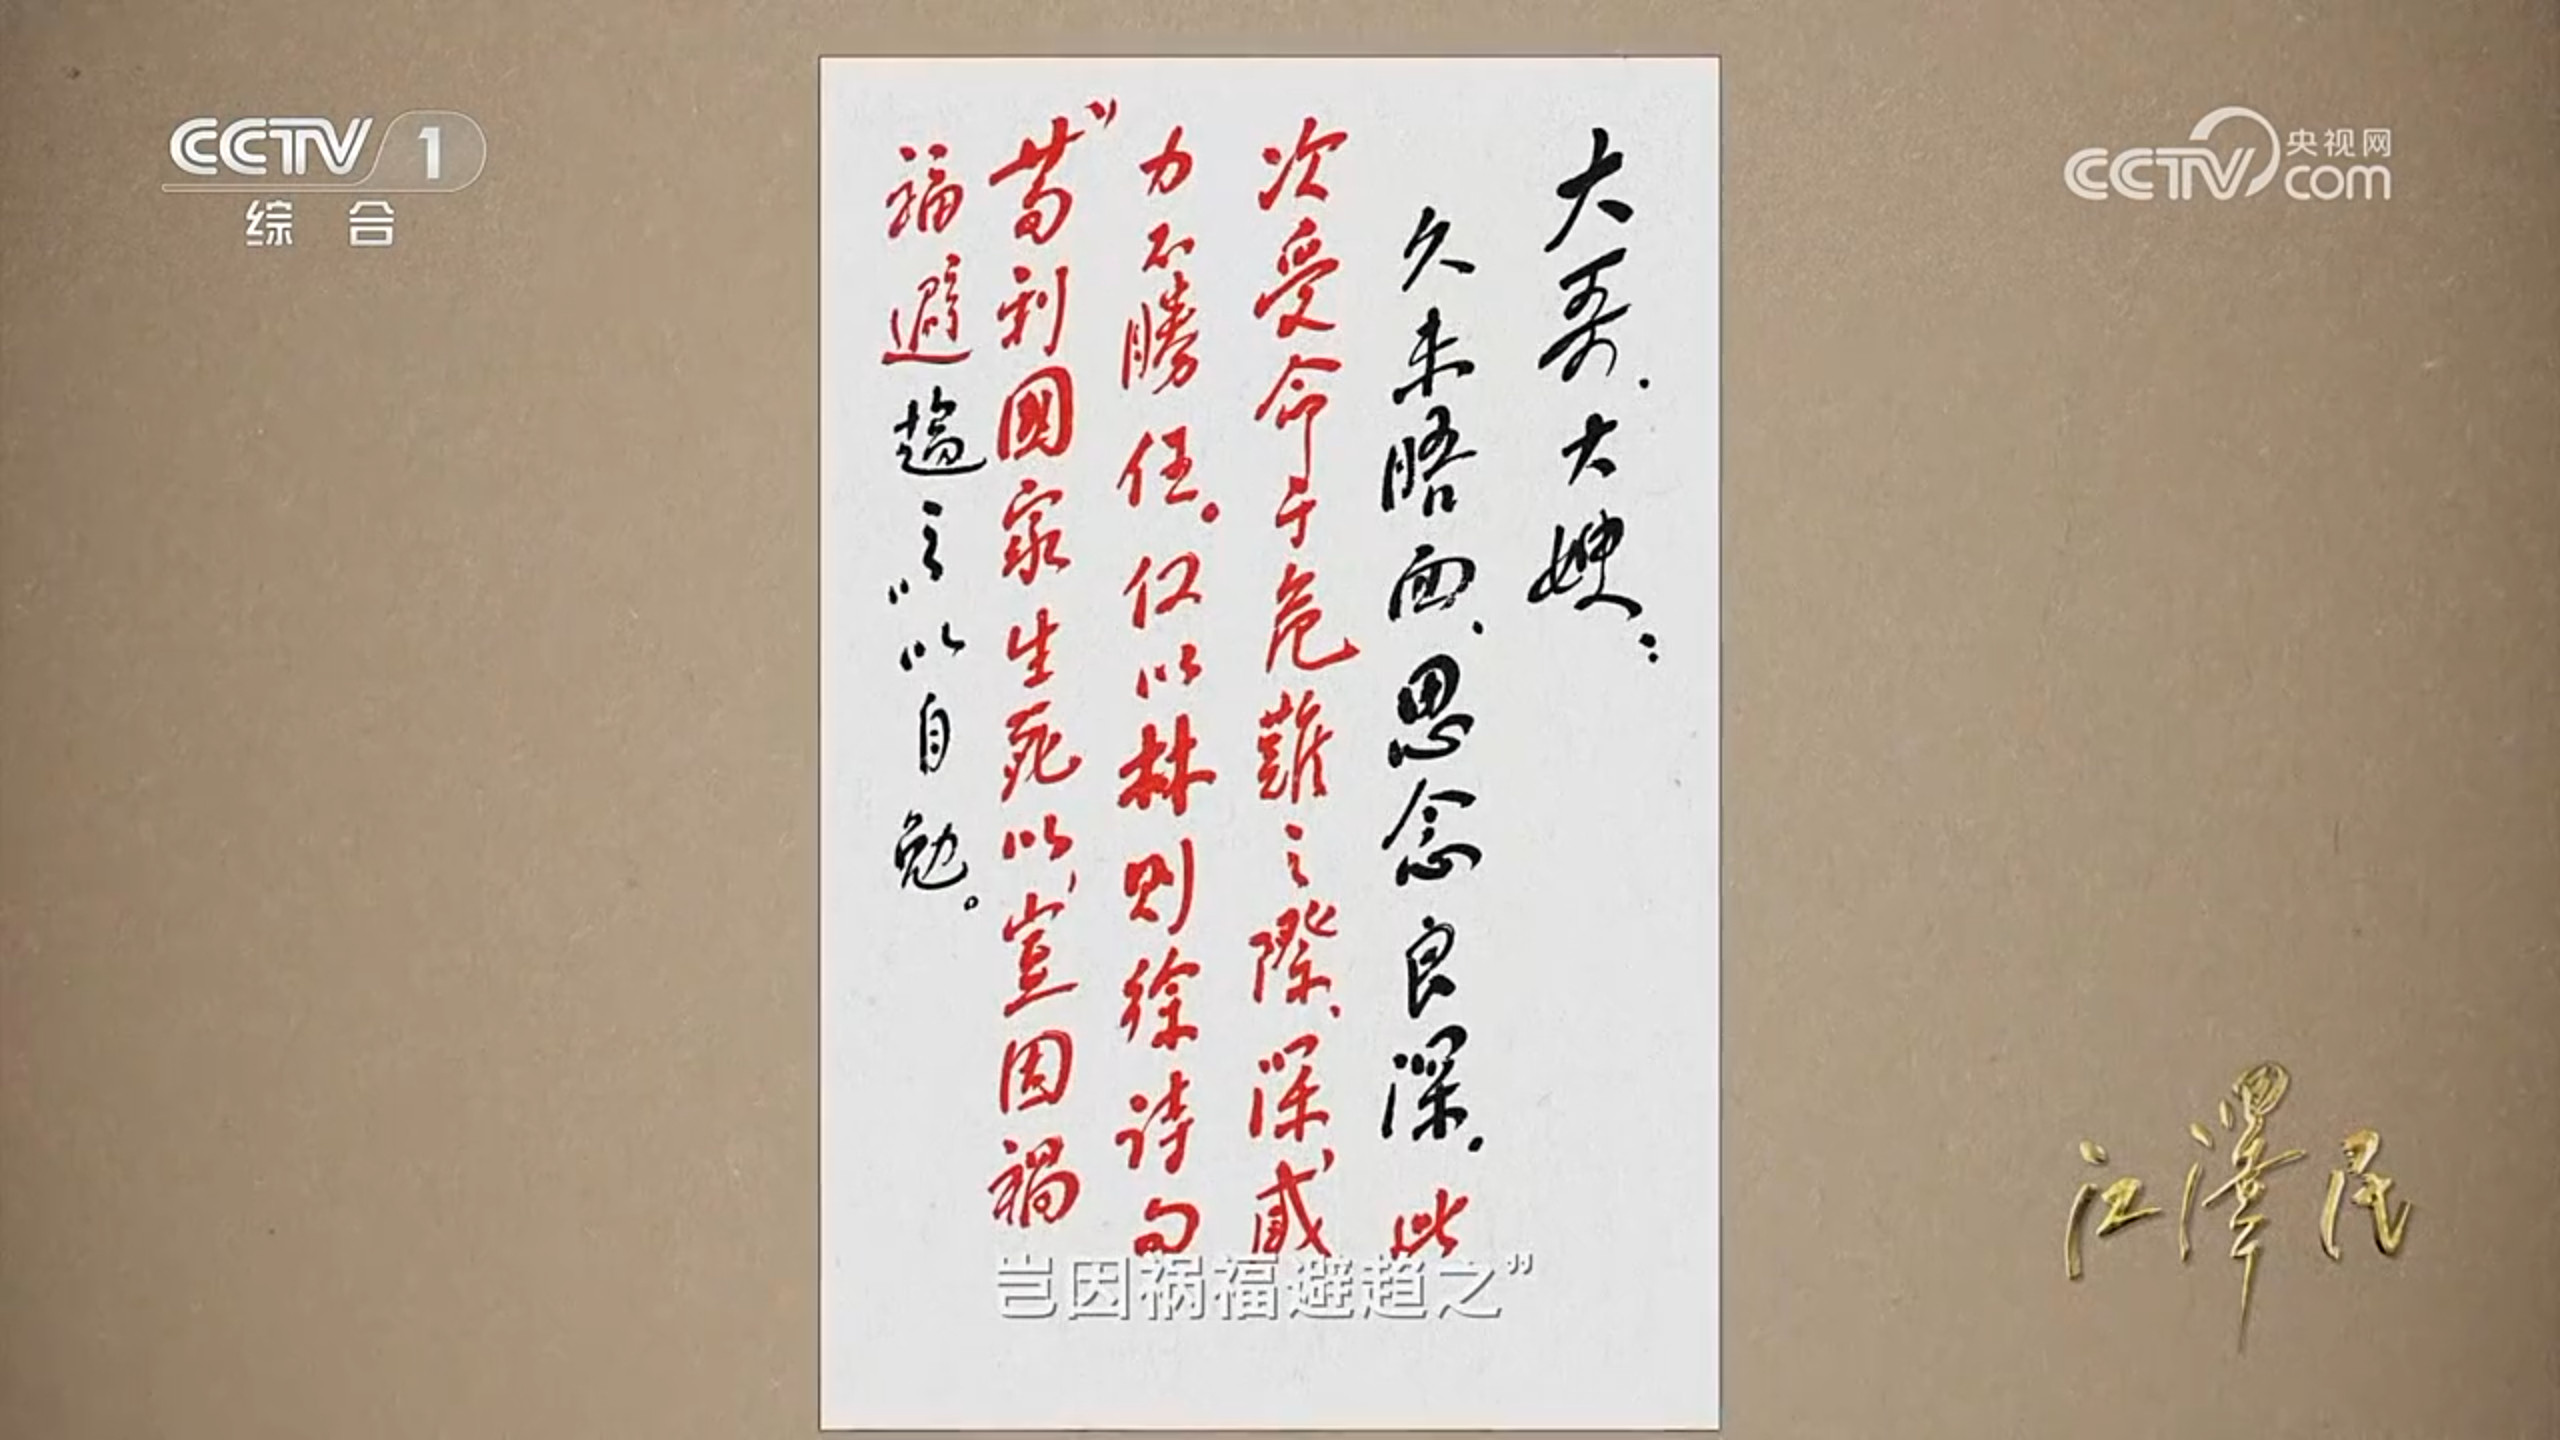 CCTV 1
综合
央视网
CCTV com
大哥、大嫂：
久未晤面、思念良深。此
次受命于危難之際、深感
力不勝任。仅以林则徐诗句
“苟利國家生死以，豈因禍
福避趨之”以自勉。
岂因祸福避趋之”
江澤民